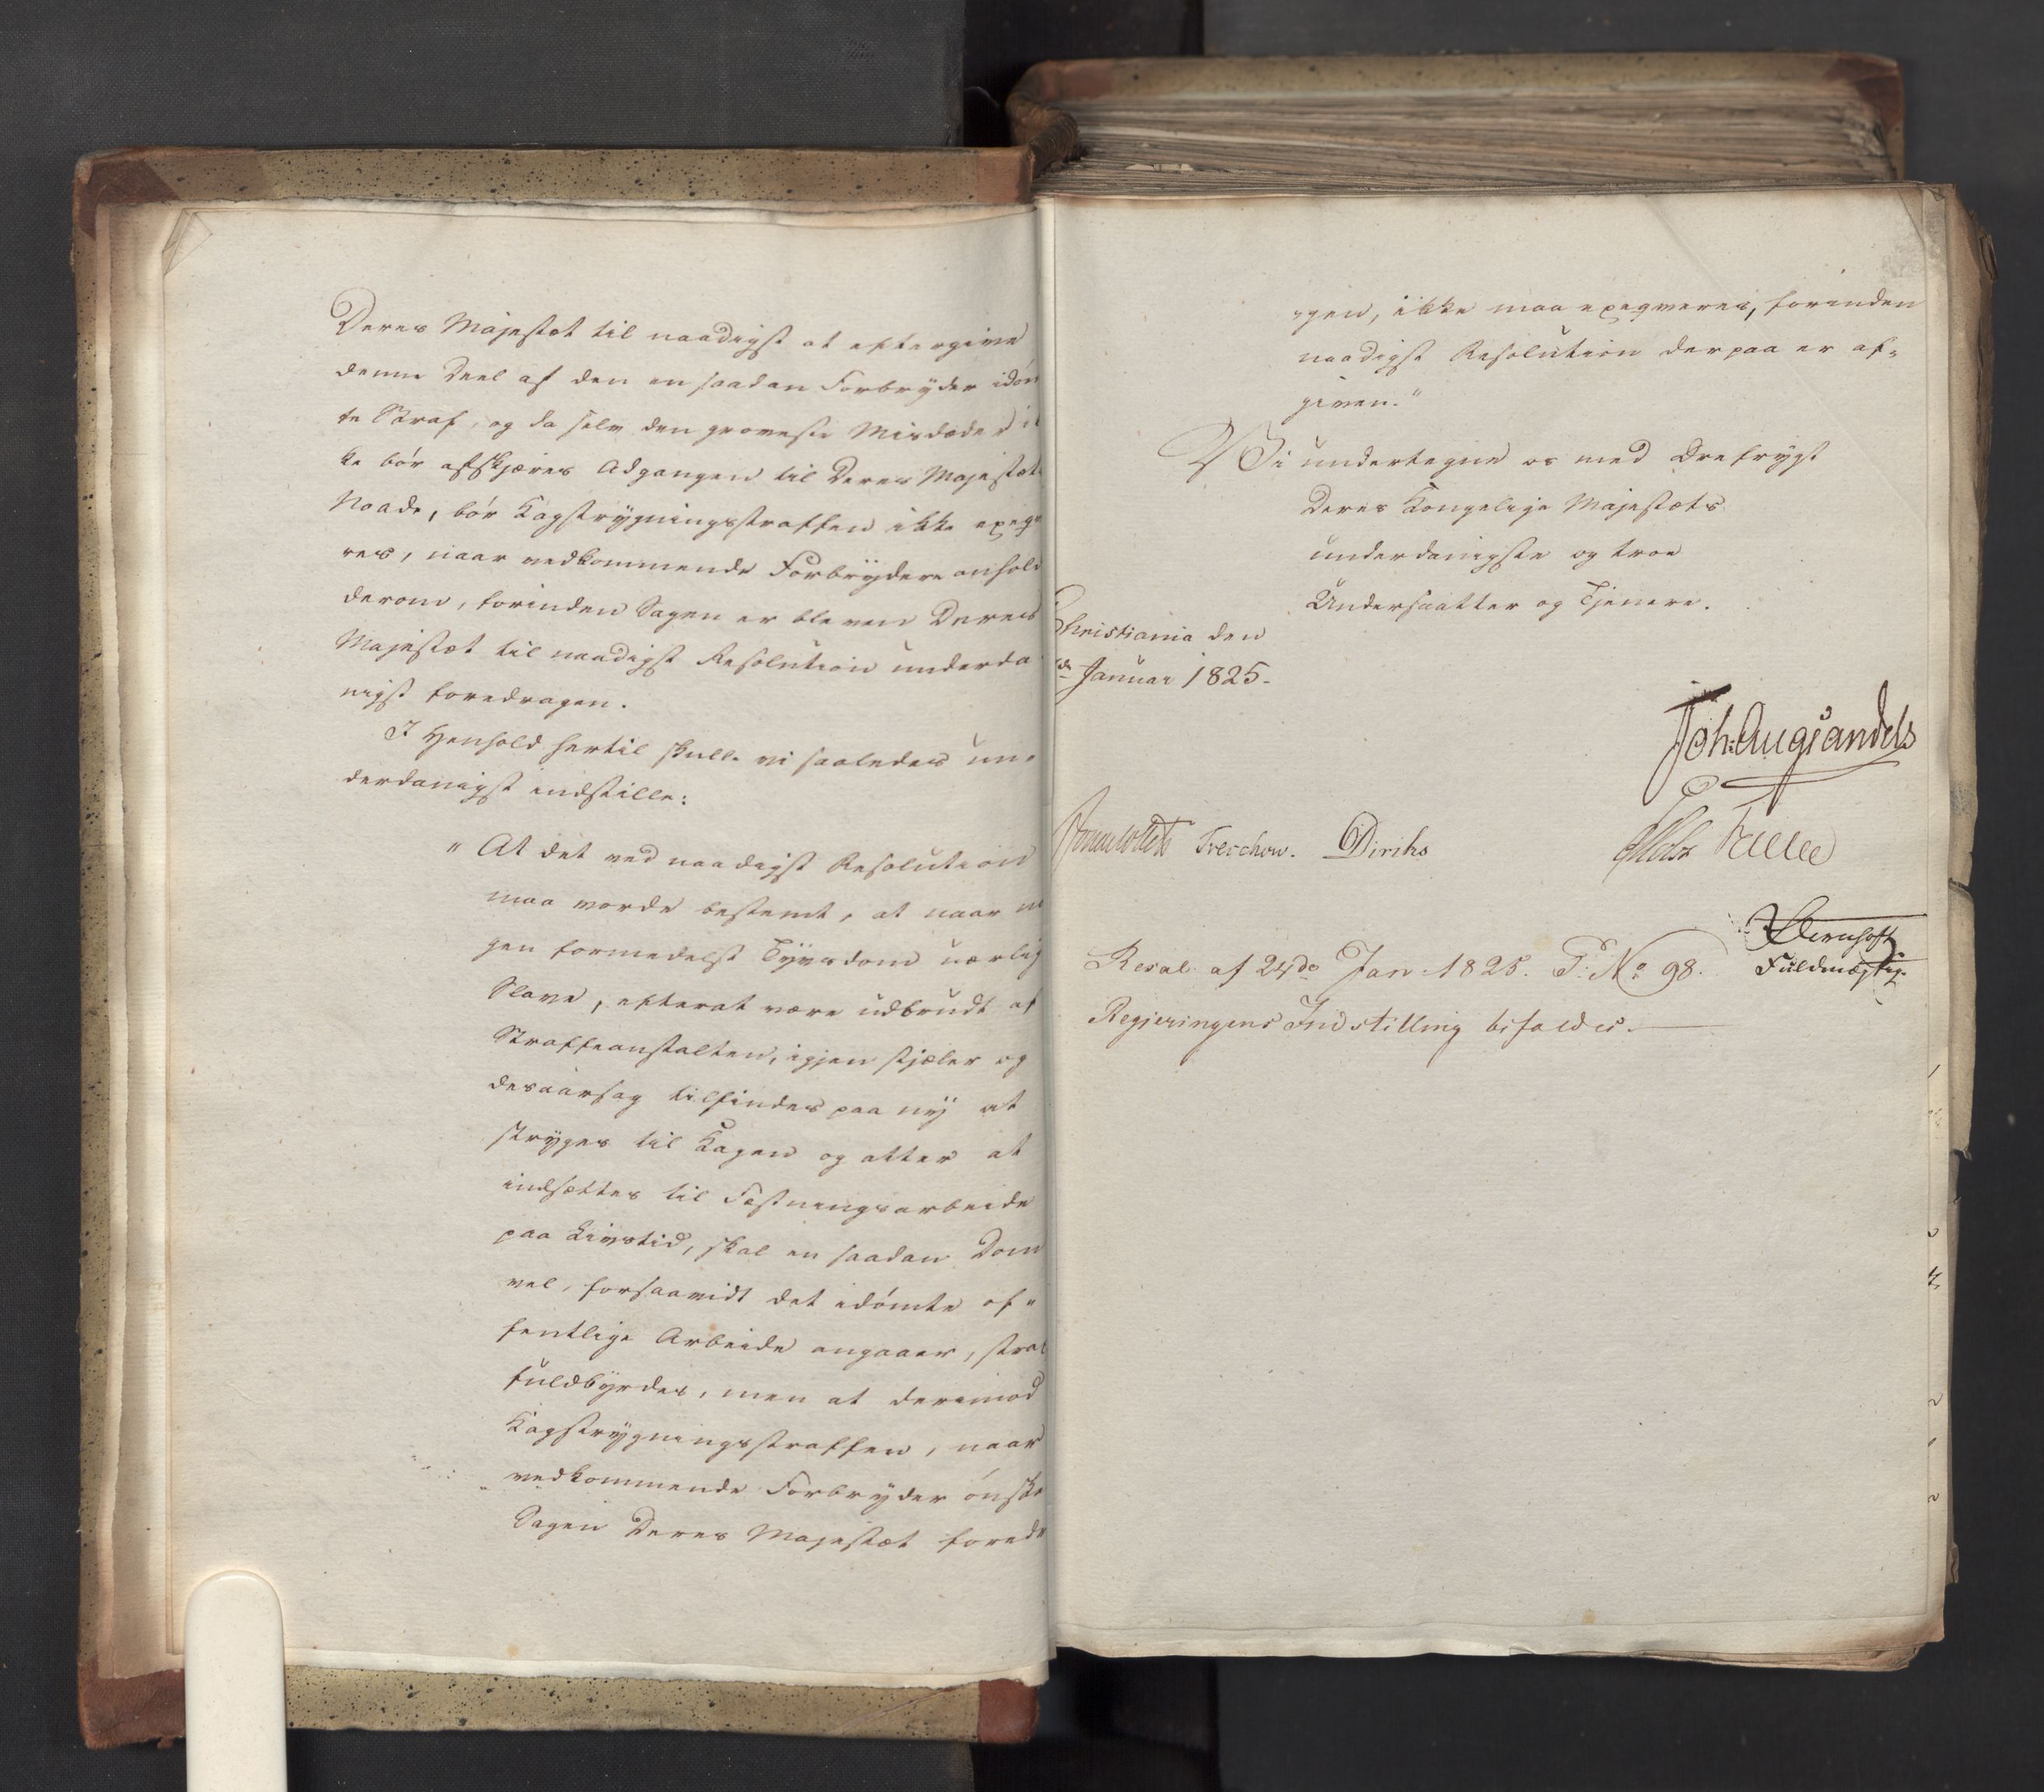 Deres Majestæt til naadigst at eftergive
denne Deel af den en saadan Forbryder idøm
te Straf, og da selv den groveste Misdæder ik
ke bør afskjæres Adgangen til Deres Majestæts
Naade, bør Kagstrygningsstraffen ikke exeqve
res, naar vedkommende Forbrydere anholde
derom, forinden Sagen er bleven Deres
Majestæt til naadigst Resolution underda
nigst foredragen.
I Henhold hertil skulle vi saaledes un-
derdanigst indstille:
" At det ved naadigst Resolution
maa vorde bestemt, at naar no
gen formedelst Tyvsdom uærlig
Slave, efterat være udbrudt af
Straffeanstalten, igjen stjæler og
desaarsag tilfindes paa ny at
stryges til Kagen og atter at
indsættes til Fæstningsarbeide
paa Livstid, skal en saadan Dom
vel, forsaavidt det idømte of-
fentlige Arbeide angaaer, strax
fuldbyrdes, men at derimod
Kagstrygningsstraffen, naar
vedkommende Forbryder ønsker
Sagen Deres Majestæt foredra
"gen, ikke maa exeqveres, forinden
naadigst Resolution derpaa er af-
given."
Vi undertegne os med Ærefrygt
Deres Kongelige Majestæts
underdanigste og troe
Undersaatter og Tjenere.
Christiania den
Januar 1825.
Joh: Aug Sandels
Sommerfeldt Treschow. Diriks
Fasting
Fuldmægtig.
Resol. af 24de Jan: 1825. P: No 98.
Regjeringens Indstilling bifaldes.